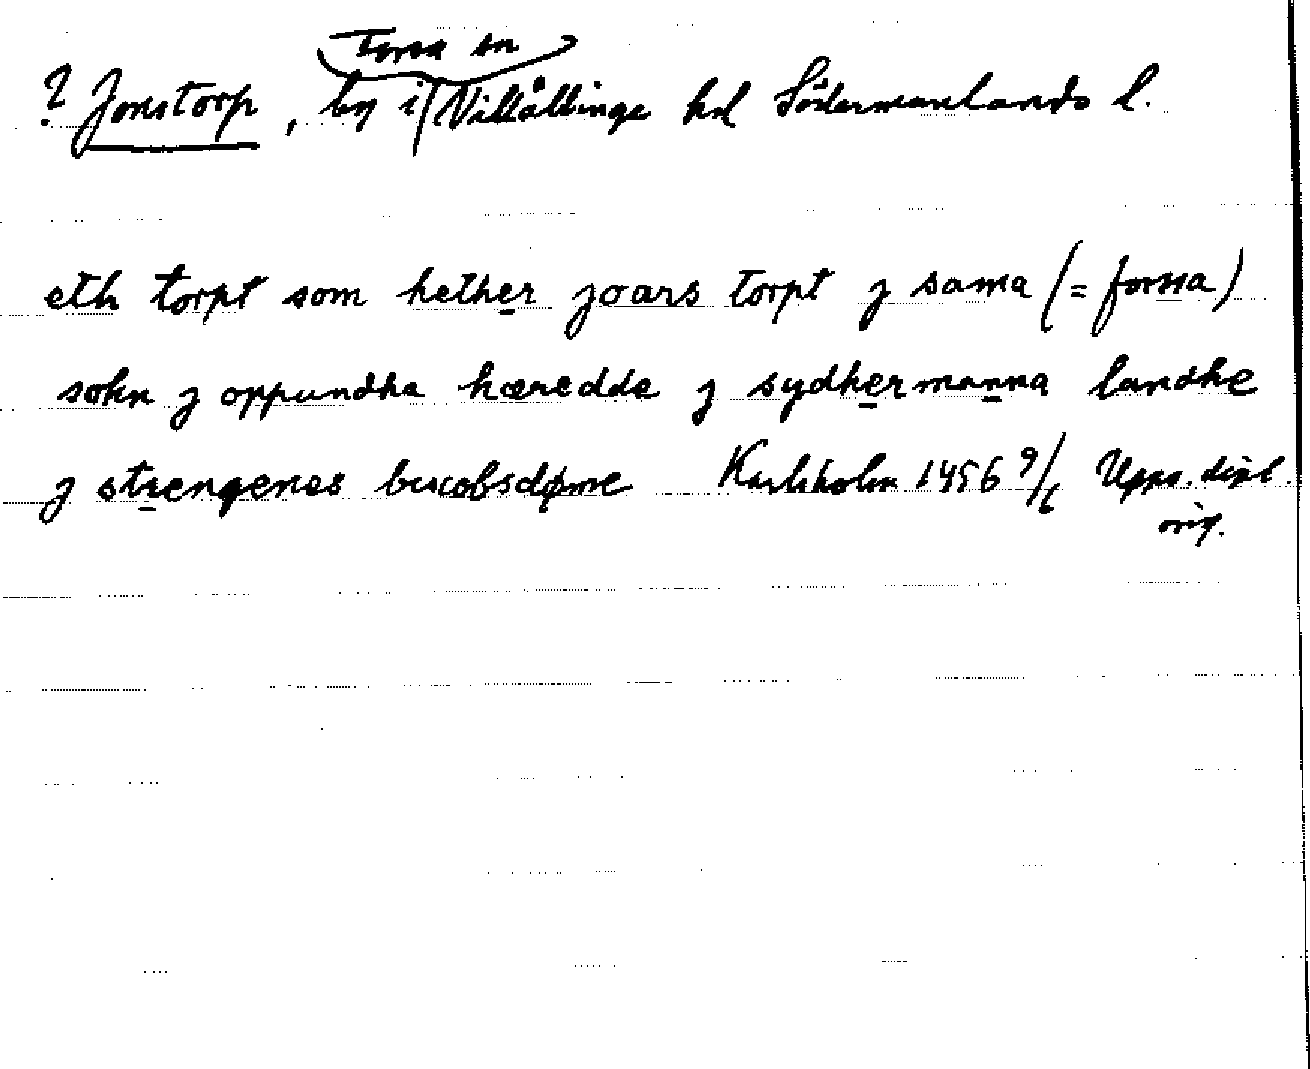 Forssa sn
? Jonstorp, by i Villåttinge hd Södermanlands l.
eth torpt som hether joars torpt j sama (= forssa)
sokn j oppundha hæredde j sydhermanna landhe
j strengenes buscobsdøme Karlsholm 1456 9/6 Upps. dipl.
orig.